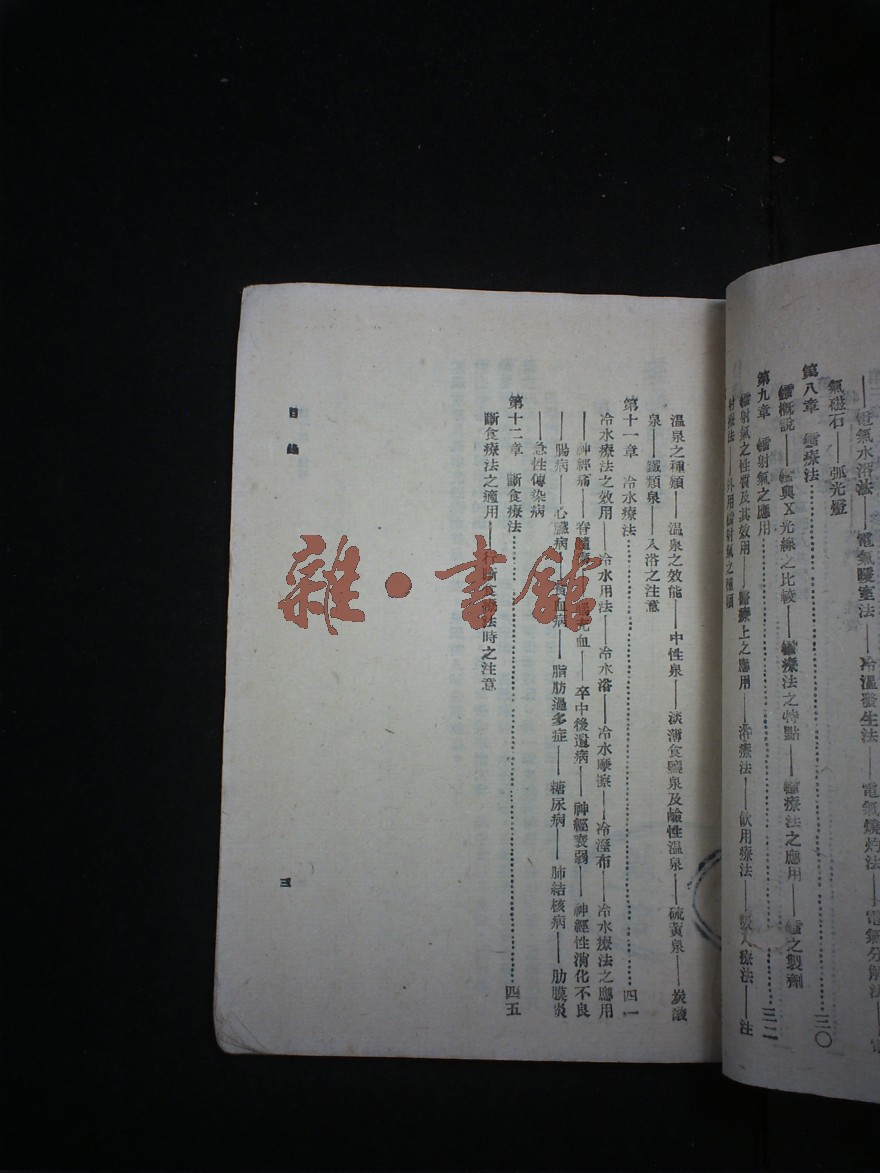 ——電氣水浴法——電氣暖室法——冷溫發生法——電氣燒灼法——電氣分解法——電
氣磁石——弧光燈
第八章 鐳療法……三〇
鐳概說——鐳與X光線之比較——鐳療法之特點——鐳療法之應用——鐳之製劑
第九章 鐳射氣之應用……三二
鐳射氣之性質及其效用——醫療上之應用——浴療法——飲用療法——吸入療法——注
射療法——外用鐳射氣之種類
溫泉之種類——溫泉之效能——中性泉——淡薄食鹽泉及鹼性溫泉——硫黃泉——炭酸
泉——鐵類泉——入浴之注意
第十一章 冷水療法……四一
冷水療法之效用——冷水用法——冷水浴——冷水摩擦——冷溼布——冷水療法之應用
——神經痛——脊髓 充血——卒中後遺病——神經衰弱——神經性消化不良
——腸病——心臟病——貧血病——脂肪過多症——糖尿病——肺結核病——肋膜炎
——急性傳染病
第十二章 斷食療法……四五
斷食療法之適用——行斷食療法時之注意
目錄
三
雜·書館